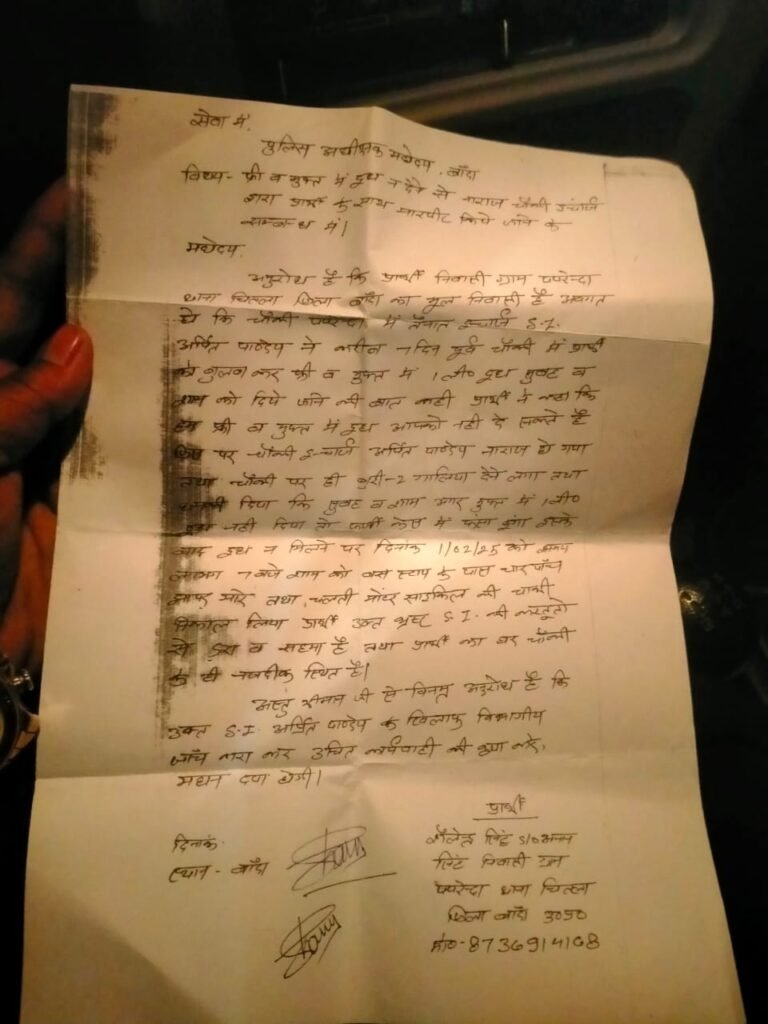 सेवा में,
पुलिस अधीक्षक महोदय, बाँदा
विषय- फ्री व मुफ्त में दूध न देने से नाराज चौकी इंचार्ज
द्वारा प्रार्थी के साथ मारपीट किये जाने के
सम्बन्ध में।
महोदय,
अनुरोध है कि प्रार्थी निवासी ग्राम पपरेन्दा
थाना चिल्ला जिला बाँदा का मूल निवासी है अवगत
हो कि चौकी पपरेन्दा में तैनात इन्चार्ज S.I.
अर्पित पाण्डेय ने करीब 7 दिन पूर्व चौकी में प्रार्थी
को बुलवा कर फ्री व मुफ्त में 1 ली० दूध सुबह व
शाम को दिये जाने की बात कही प्रार्थी ने कहा कि
हम फ्री व मुफ्त में दूध आपको नही दे सकते है
जिस पर चौकी इन्चार्ज अर्पित पाण्डेय नाराज हो गया
तथा चौकी पर ही बुरी-2 गालिया देने लगा तथा
धमकी दिया कि सुबह व शाम अगर मुफ्त में 1 ली०
दूध नही दिया तो फर्जी केस में फंसा दूंगा इसके
बाद दूध न मिलने पर दिनांक 1/02/25 को समय
लगभग 7 बजे शाम को बस स्टाप के पास चार पाँच
झापड़ मारे तथा चलती मोटर साइकिल की चाभी
निकाल लिया प्रार्थी उक्त भ्रष्ट S.I. की करतूतो
से डरा व सहमा है तथा प्रार्थी का घर चौकी
के ही नजदीक स्थित है।
अस्तु श्रीमान जी से विनम्र अनुरोध है कि
उक्त S.I. अर्पित पाण्डेय के खिलाफ विभागीय
जाँच करा कर उचित कार्यवाही की कृपा करे,
महान दया होगी।
प्रार्थी
दिनांक.
स्थान - बाँदा
शैलेन्द्र सिंह S/o
सिंह निवासी ग्राम
पपरेन्दा थाना चिल्ला
जिला बाँदा उ०प्र०
मो०-8736914168